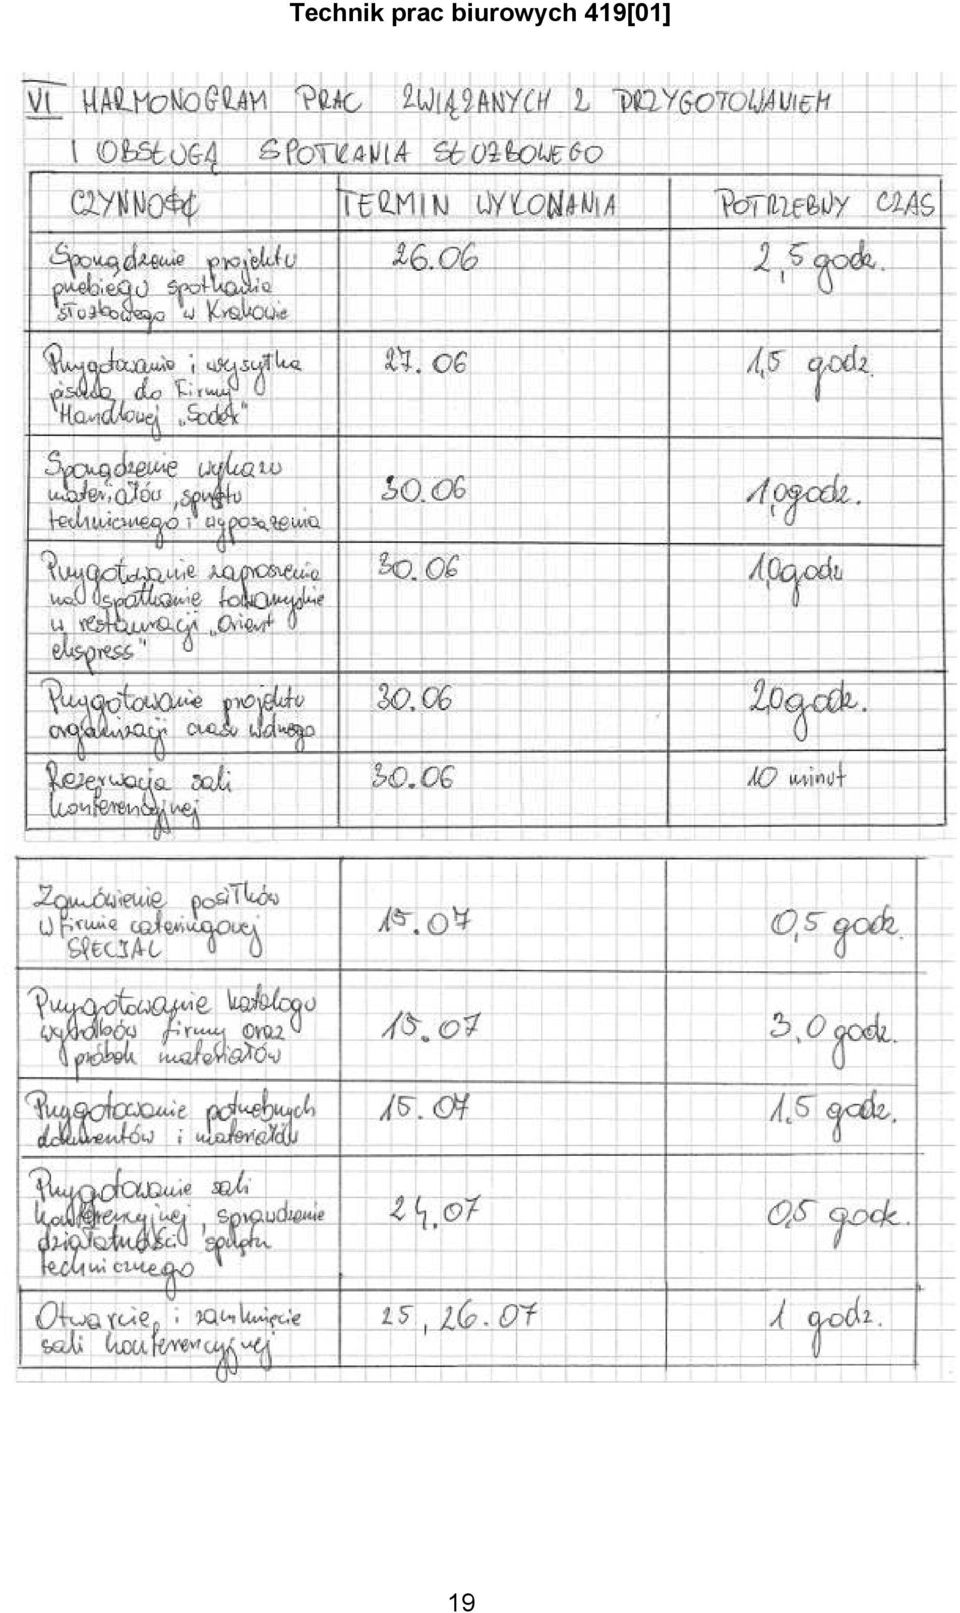 Technik prac biurowych 419[01]
VI HARMONOGRAM PRAC ZWIĄZANYCH Z PRZYGOTOWANIEM
I OBSŁUGĄ SPOTKANIA SŁUŻBOWEGO
CZYNNOŚĆ TERMIN WYKONANIA POTRZEBNY CZAS
Sporządzenie projektu 26.06 2,5 godz.
przebiegu spotkania
służbowego w Krakowie
Przygotowanie i wysyłka 27.06 1,5 godz.
pisma do Firmy
Handlowej „Sodex"
Sporządzenie wykazu
materiałów, sprzętu 30.06 1,0godz.
technicznego i wyposażenia
Przygotowanie zaproszenia 30.06 1,0godz
na spotkanie towarzyskie
w restauracji „Orient
ekspress"
Przygotowanie projektu 30.06 2,0godz.
organizacji czasu wolnego
Rezerwacja sali 30.06 10 minut
konferencyjnej
Zamówienie posiłków
w firmie cateringowej 15.07 0,5 godz.
SPECJAŁ
Przygotowanie katalogu
wyrobów firmy oraz 15.07 3,0 godz.
próbek materiałów
Przygotowanie potrzebnych 15.07 1,5 godz.
dokumentów i materiałów
Przygotowanie sali
konferencyjnej, sprawdzenie 24.07 0,5 godz.
działalności sprzętu
technicznego
Otwarcie i zamknięcie 25, 26.07 1 godz.
sali konferencyjnej
19